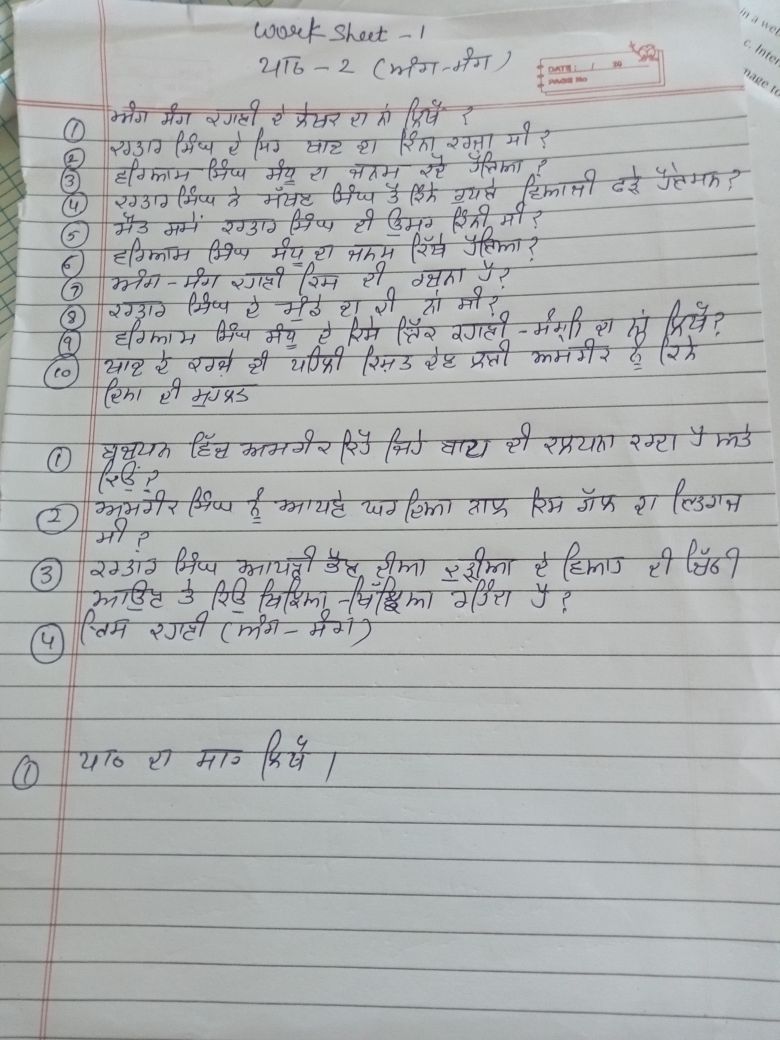 Work Sheet - 1
ਪਾਠ - 2 (ਅੰਗ-ਸੰਗ)
DATE: / 20
PAGE No
① ਅੰਗ ਸੰਗ ਕਹਾਣੀ ਦੇ ਲੇਖਕ ਦਾ ਨਾਂ ਲਿਖੋ ?
② ਕਰਤਾਰ ਸਿੰਘ ਦੇ ਸਿਰ ਖਾਦ ਦਾ ਕਿੰਨਾ ਕਰਜ਼ਾ ਸੀ ?
③ ਵਰਿਆਮ ਸਿੰਘ ਸੰਧੂ ਦਾ ਜਨਮ ਕਦੋਂ ਹੋਇਆ ?
④ ਕਰਤਾਰ ਸਿੰਘ ਨੇ ਮੱਖਣ ਸਿੰਘ ਤੋਂ ਕਿੰਨੇ ਰੁਪਏ ਵਿਆਜੀ ਫੜੇ ਹੋਏ ਸਨ ?
⑤ ਮੌਤ ਸਮੇਂ ਕਰਤਾਰ ਸਿੰਘ ਦੀ ਉਮਰ ਕਿੰਨੀ ਸੀ ?
⑥ ਵਰਿਆਮ ਸਿੰਘ ਸੰਧੂ ਦਾ ਜਨਮ ਕਿੱਥੇ ਹੋਇਆ ?
⑦ ਅੰਗ - ਸੰਗ ਕਹਾਣੀ ਕਿਸ ਦੀ ਰਚਨਾ ਹੈ ?
⑧ ਕਰਤਾਰ ਸਿੰਘ ਦੇ ਮੁੰਡੇ ਦਾ ਕੀ ਨਾਂ ਸੀ ?
⑨ ਵਰਿਆਮ ਸਿੰਘ ਸੰਧੂ ਦੇ ਕਿਸੇ ਇੱਕ ਕਹਾਣੀ - ਸੰਗ੍ਰਹਿ ਦਾ ਨਾਂ ਲਿਖੋ ?
⑩ ਖਾਦ ਦੇ ਕਰਜ਼ੇ ਦੀ ਪਹਿਲੀ ਕਿਸ਼ਤ ਦੇਣ ਲਈ ਅਮਰੀਕ ਨੂੰ ਕਿੰਨੇ
ਦਿਨਾਂ ਦੀ ਮੁਹਲਤ
① ਬਚਪਨ ਵਿੱਚ ਅਮਰੀਕ ਕਿਹੋ ਜਿਹੇ ਬਾਪੂ ਦੀ ਕਲਪਨਾ ਕਰਦਾ ਹੈ ਅਤੇ
ਕਿਉਂ ?
② ਅਮਰੀਕ ਸਿੰਘ ਨੂੰ ਆਪਣੇ ਘਰਦਿਆਂ ਨਾਲ ਕਿਸ ਗੱਲ ਦਾ ਇਤਰਾਜ਼
ਸੀ ?
③ ਕਰਤਾਰ ਸਿੰਘ ਆਪਣੀ ਭੈਣ ਦੀਆਂ ਕੁੜੀਆਂ ਦੇ ਵਿਆਹ ਦੀ ਚਿੱਠੀ
ਆਉਣ ਤੇ ਕਿਉਂ ਖਿਝਿਆ - ਖਿੱਝਿਆ ਰਹਿੰਦਾ ਹੈ ?
④ ਇਸ ਕਹਾਣੀ (ਅੰਗ - ਸੰਗ)
① ਪਾਠ ਦਾ ਸਾਰ ਲਿਖੋ ।